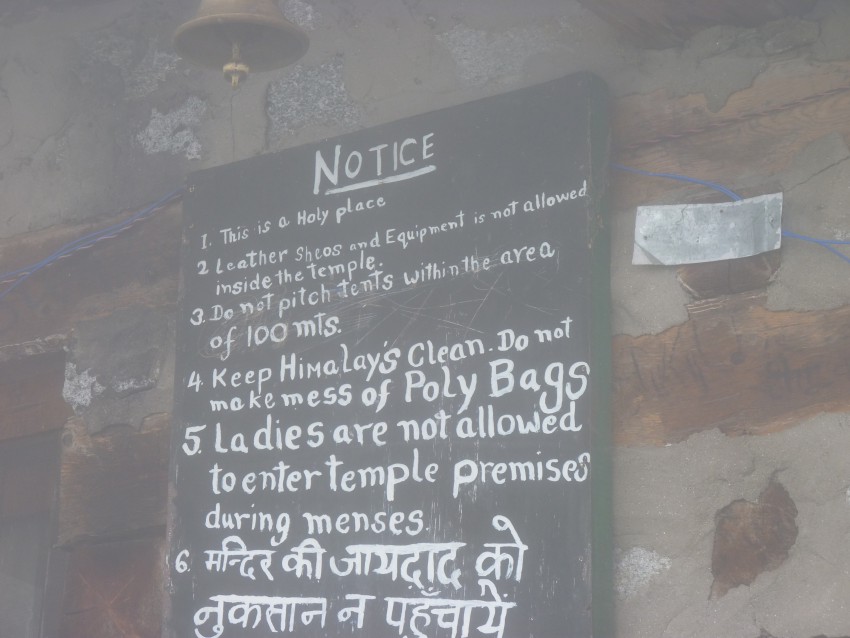 NOTICE
1. This is a Holy place
2 Leather Sheos and Equipment is not allowed
inside the temple.
3. Do not pitch tents within the area
of 100 mts.
4. Keep Himalay's Clean. Do not
make mess of Poly Bags
5. Ladies are not allowed
to enter temple premises
during menses.
6. मन्दिर की जायदाद को
नुकसान न पहुँचायें